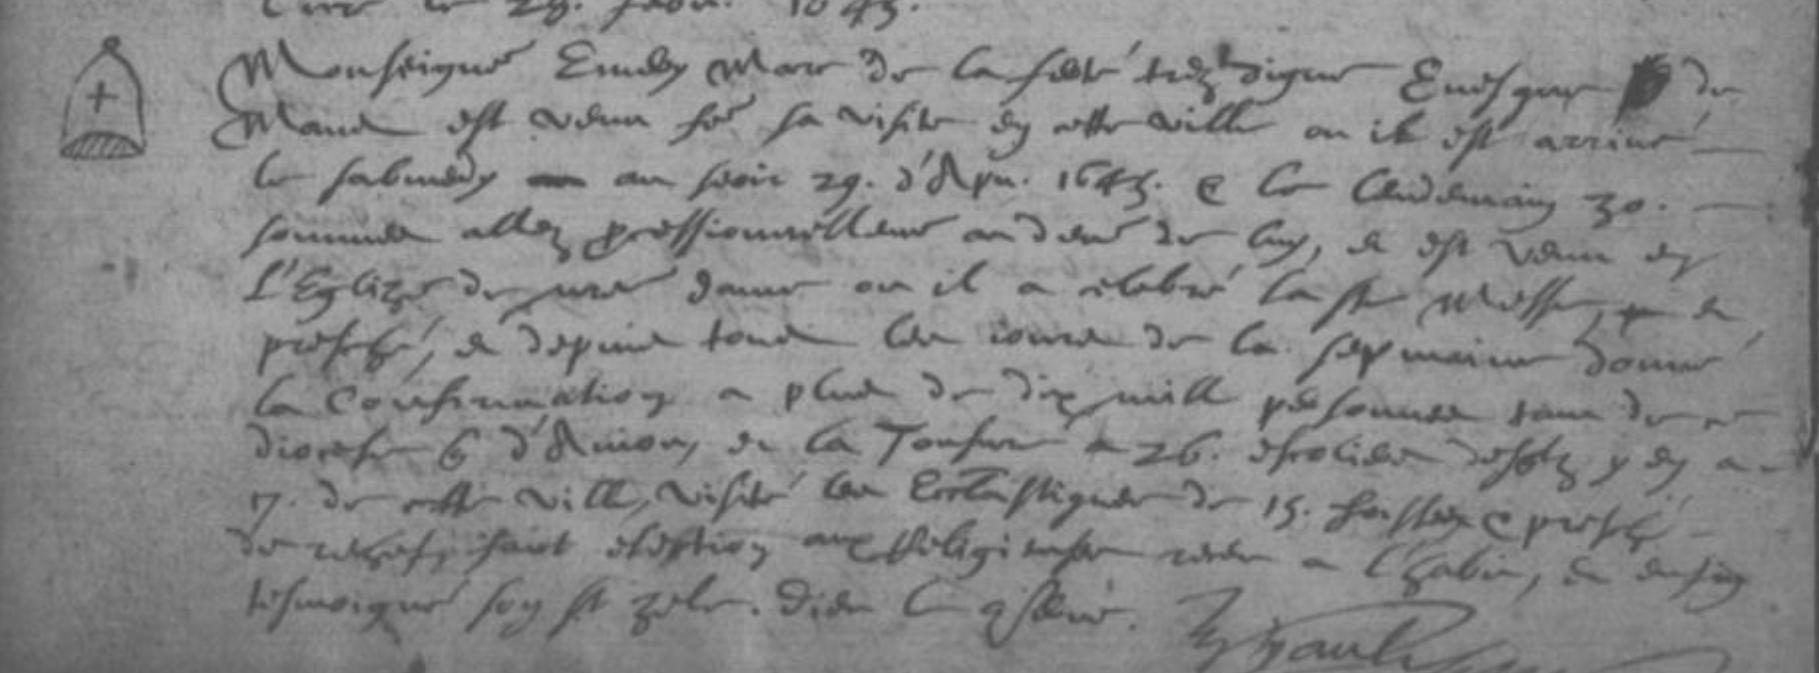 le 29.
Monseigneur Emery Marc de la ferté tresdigne Evesque de
Mans est venu fe sa visite en cette ville ou il est arrivé
le sabmedy au soir 29. d'Apv. 1645. & le lendemain 30.
sommes allez pcessionnellemt au devt de luy, et est venu en
L'Eglize de nre dame ou il a celebré la ste Messe, et
presché, et depuis tous les iours de la sepmaine donné
la Confirmation a plus de dix mille psonnes tant de ce
diocese d'Anjou, et la Tonsure a 26. escoliers desqlz y en a
17. de cette ville, visité les Ecclesiastiques de 15. &
de rechef, faict aux Religieuses a l'habit, et
tesmoigné son st zele. Dieu le conserve.